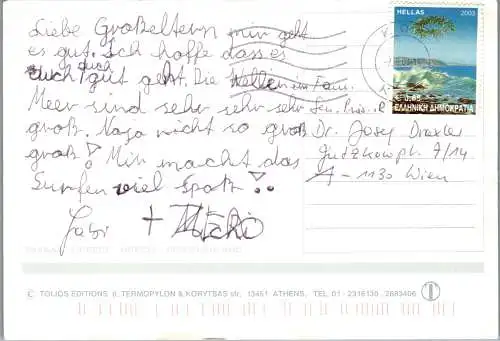 Liebe Großeltern mir geht
es gut. Ich hoffe dass es
euch auch gut geht. Die Wellen im
Meer sind sehr sehr sehr
groß. Naja nicht so groß
groß! Mir macht das
Surfen viel Spaß!
Gabi +
HELLAS 2003
€ 0,65
ΕΛΛΗΝΙΚΗ ΔΗΜΟΚΡΑΤΙΑ
Fam.
Dr. Josef Draxler
7/14
A-1130 Wien
© TOLIOS EDITIONS 8, TERMOPYLON & KORYTSAS str, 13451 ATHENS, TEL. 01 - 2316130, 2683406